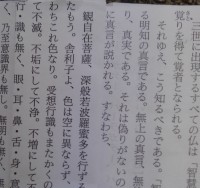 三世に出現するすべての仏は「智慧
覚りを得て覚者となられる。
それゆえ、こう知るべきである。「
る明知の真言である。無上の真言、無
り、真実である。それは偽りがないの
に真言が説かれる。すなわち、
観自在菩薩、深般若波羅蜜多を行ず
たもう。舎利子よ、色は空に異ならず、
わちこれ色なり。受想行識もまたかくの
て不滅。不垢にして不浄。不増にして
行・識も無く、眼・耳・鼻・舌・身
く、乃至意識界も無し。無明も無く、